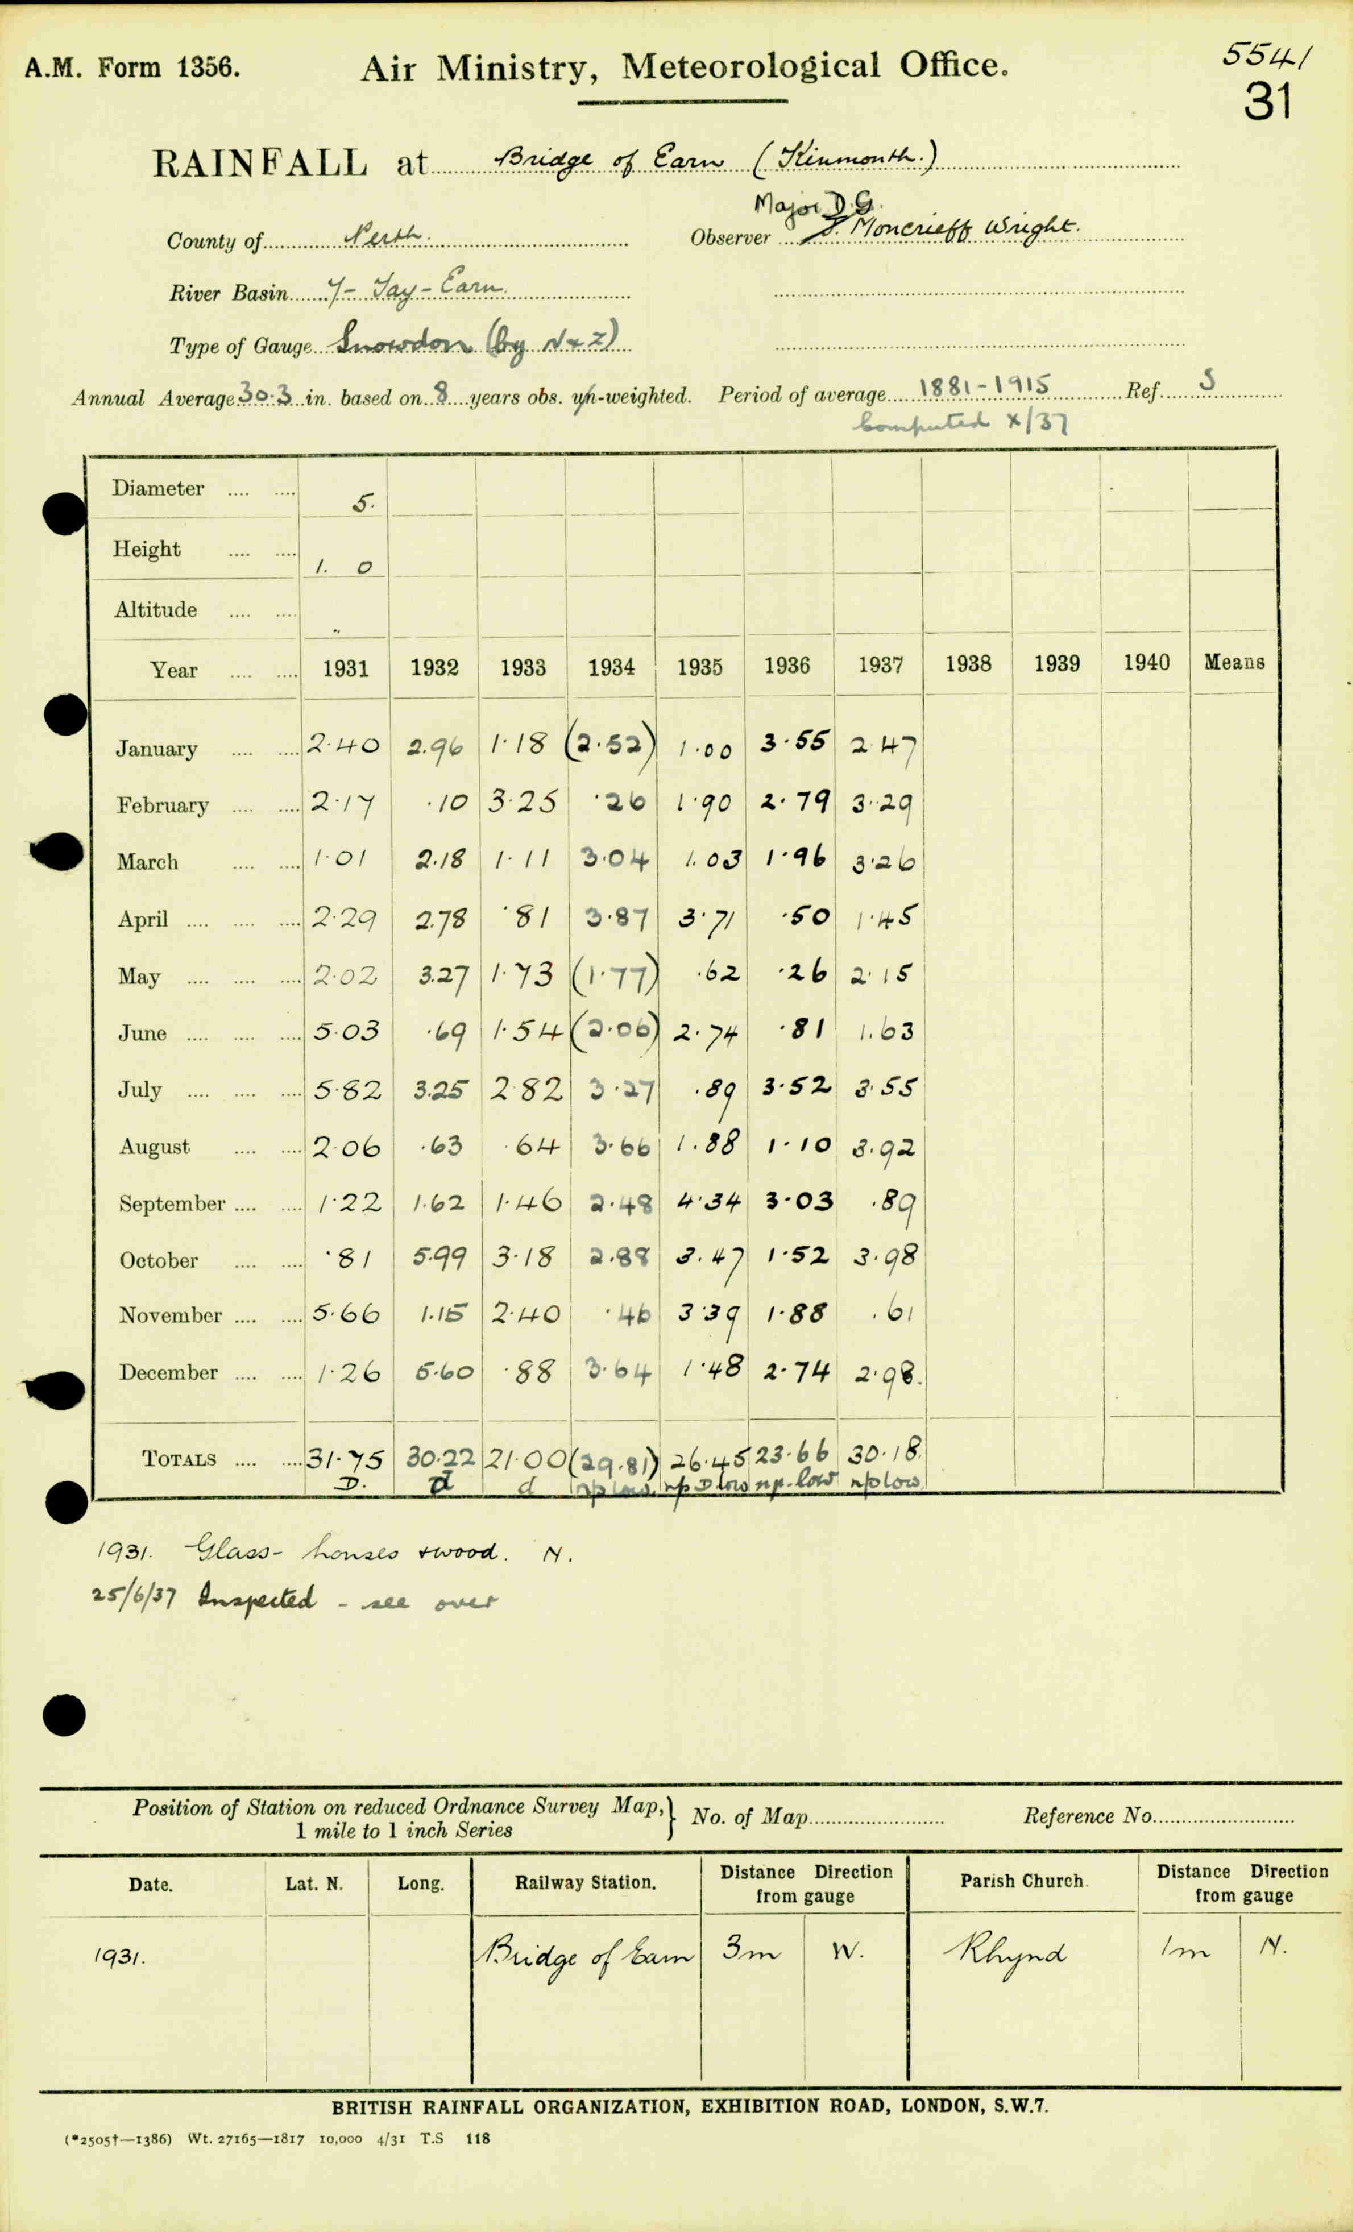 A.M. Form 1356.
Air Ministry, Meteorological Office.
5541
31
RAINFALL at Bridge of Earn (Kinmonth.)
Major D.G.
County of Perth. Observer Moncrieff Wright.
River Basin 7- Tay - Earn.
Type of Gauge Snowdon (by N & Z)
Annual Average 30.3 in. based on 8 years obs. un-weighted. Period of average 1881-1915 Ref. S
Computed X/37
Diameter 5.
Height 1. 0
Altitude
Year 1931 1932 1933 1934 1935 1936 1937 1938 1939 1940 Means
January 2.40 2.96 1.18 (2.52) 1.00 3.55 2.47
February 2.17 .10 3.25 .26 1.90 2.79 3.29
March 1.01 2.18 1.11 3.04 1.03 1.96 3.26
April 2.29 2.78 .81 3.87 3.71 .50 1.45
May 2.02 3.27 1.73 (1.77) .62 .26 2.15
June 5.03 .69 1.54 (2.06) 2.74 .81 1.63
July 5.82 3.25 2.82 3.27 .89 3.52 3.55
August 2.06 .63 .64 3.66 1.88 1.10 3.92
September 1.22 1.62 1.46 2.48 4.34 3.03 .89
October .81 5.99 3.18 2.88 3.47 1.52 3.98
November 5.66 1.15 2.40 .46 3.39 1.88 .61
December 1.26 5.60 .88 3.64 1.48 2.74 2.98.
TOTALS 31.75 30.22 21.00 (29.81) 26.45 23.66 30.18
D. d d np low np D low np. low np low
1931. Glass-houses & wood. N.
25/6/37 Inspected - see over
Position of Station on reduced Ordnance Survey Map, } No. of Map Reference No.
1 mile to 1 inch Series
Date. Lat. N. Long. Railway Station. Distance Direction from gauge Parish Church. Distance Direction from gauge
1931. Bridge of Earn 3m W. Rhynd 1m N.
BRITISH RAINFALL ORGANIZATION, EXHIBITION ROAD, LONDON, S.W.7.
(*2505†—1386) Wt. 27165—1817 10,000 4/31 T.S 118